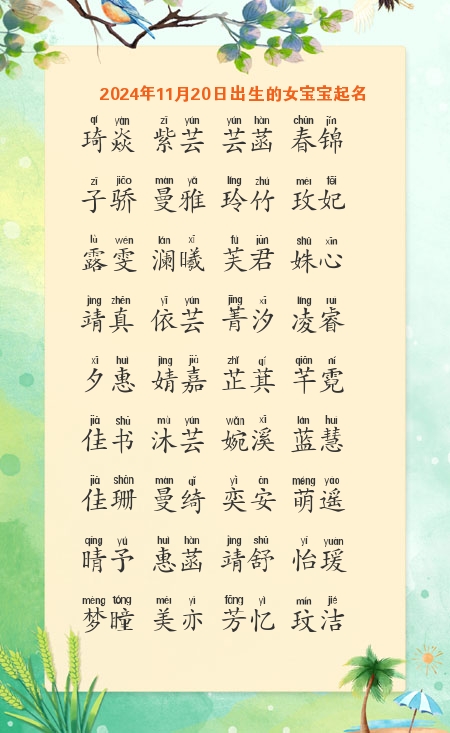 2024年11月20日出生的女宝宝起名
qí yàn zǐ yún yún hàn chūn jǐn
琦焱 紫芸 芸菡 春锦
zǐ jiāo màn yǎ líng zhú méi fēi
子骄 曼雅 玲竹 玫妃
lù wén lán xī fú jūn shū xīn
露雯 澜曦 芙君 姝心
jìng zhēn yī yún jīng xī líng ruì
靖真 依芸 菁汐 凌睿
xī huì jìng jiā zhǐ qí qiān ní
夕惠 婧嘉 芷萁 芊霓
jiā shū mù yún wǎn xī lán huì
佳书 沐芸 婉溪 蓝慧
jiā shān màn qǐ yì ān méng yáo
佳珊 曼绮 奕安 萌遥
qíng yǔ huì hàn jìng shū yí yuàn
晴予 惠菡 靖舒 怡瑗
mèng tóng měi yì fāng yì mín jié
梦瞳 美亦 芳忆 玟洁